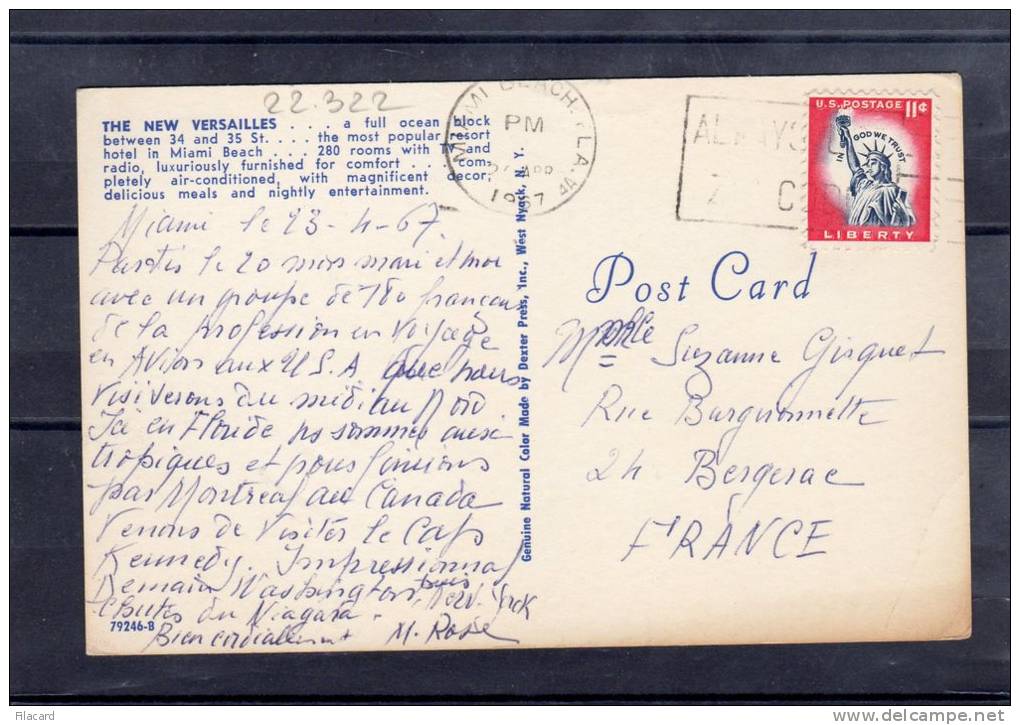 22.322
THE NEW VERSAILLES . . . . a full ocean block
between 34 and 35 St. . . . the most popular resort
hotel in Miami Beach . . . 280 rooms with TV and
radio, luxuriously furnished for comfort . . . com-
pletely air-conditioned, with magnificent decor,
delicious meals and nightly entertainment.
MIAMI BEACH. FLA.
PM
APR
1967
ALWAYS
Z C
U.S. POSTAGE 11¢
IN GOD WE TRUST
LIBERTY
Miami le 23-4-67
Partis le 20 mon mari et moi
avec un groupe de 180 français
de la profession en voyage
en Avion aux U.S.A que nous
visiterons du midi au Nord.
Ici en Floride ns sommes aux
tropiques et nous finirons
par Montreal au Canada
Venons de visiter le Cap
Kennedy. Impressionnant
Demain Washington, puis New-York
Chutes du Niagara.
Bien cordialement M. Rose
79246-B
Genuine Natural Color Made by Dexter Press, Inc., West Nyack, N. Y.
Post Card
Suzanne Girquet
Rue
24 Bergerac
FRANCE
filacard
http://www.delcampe.net